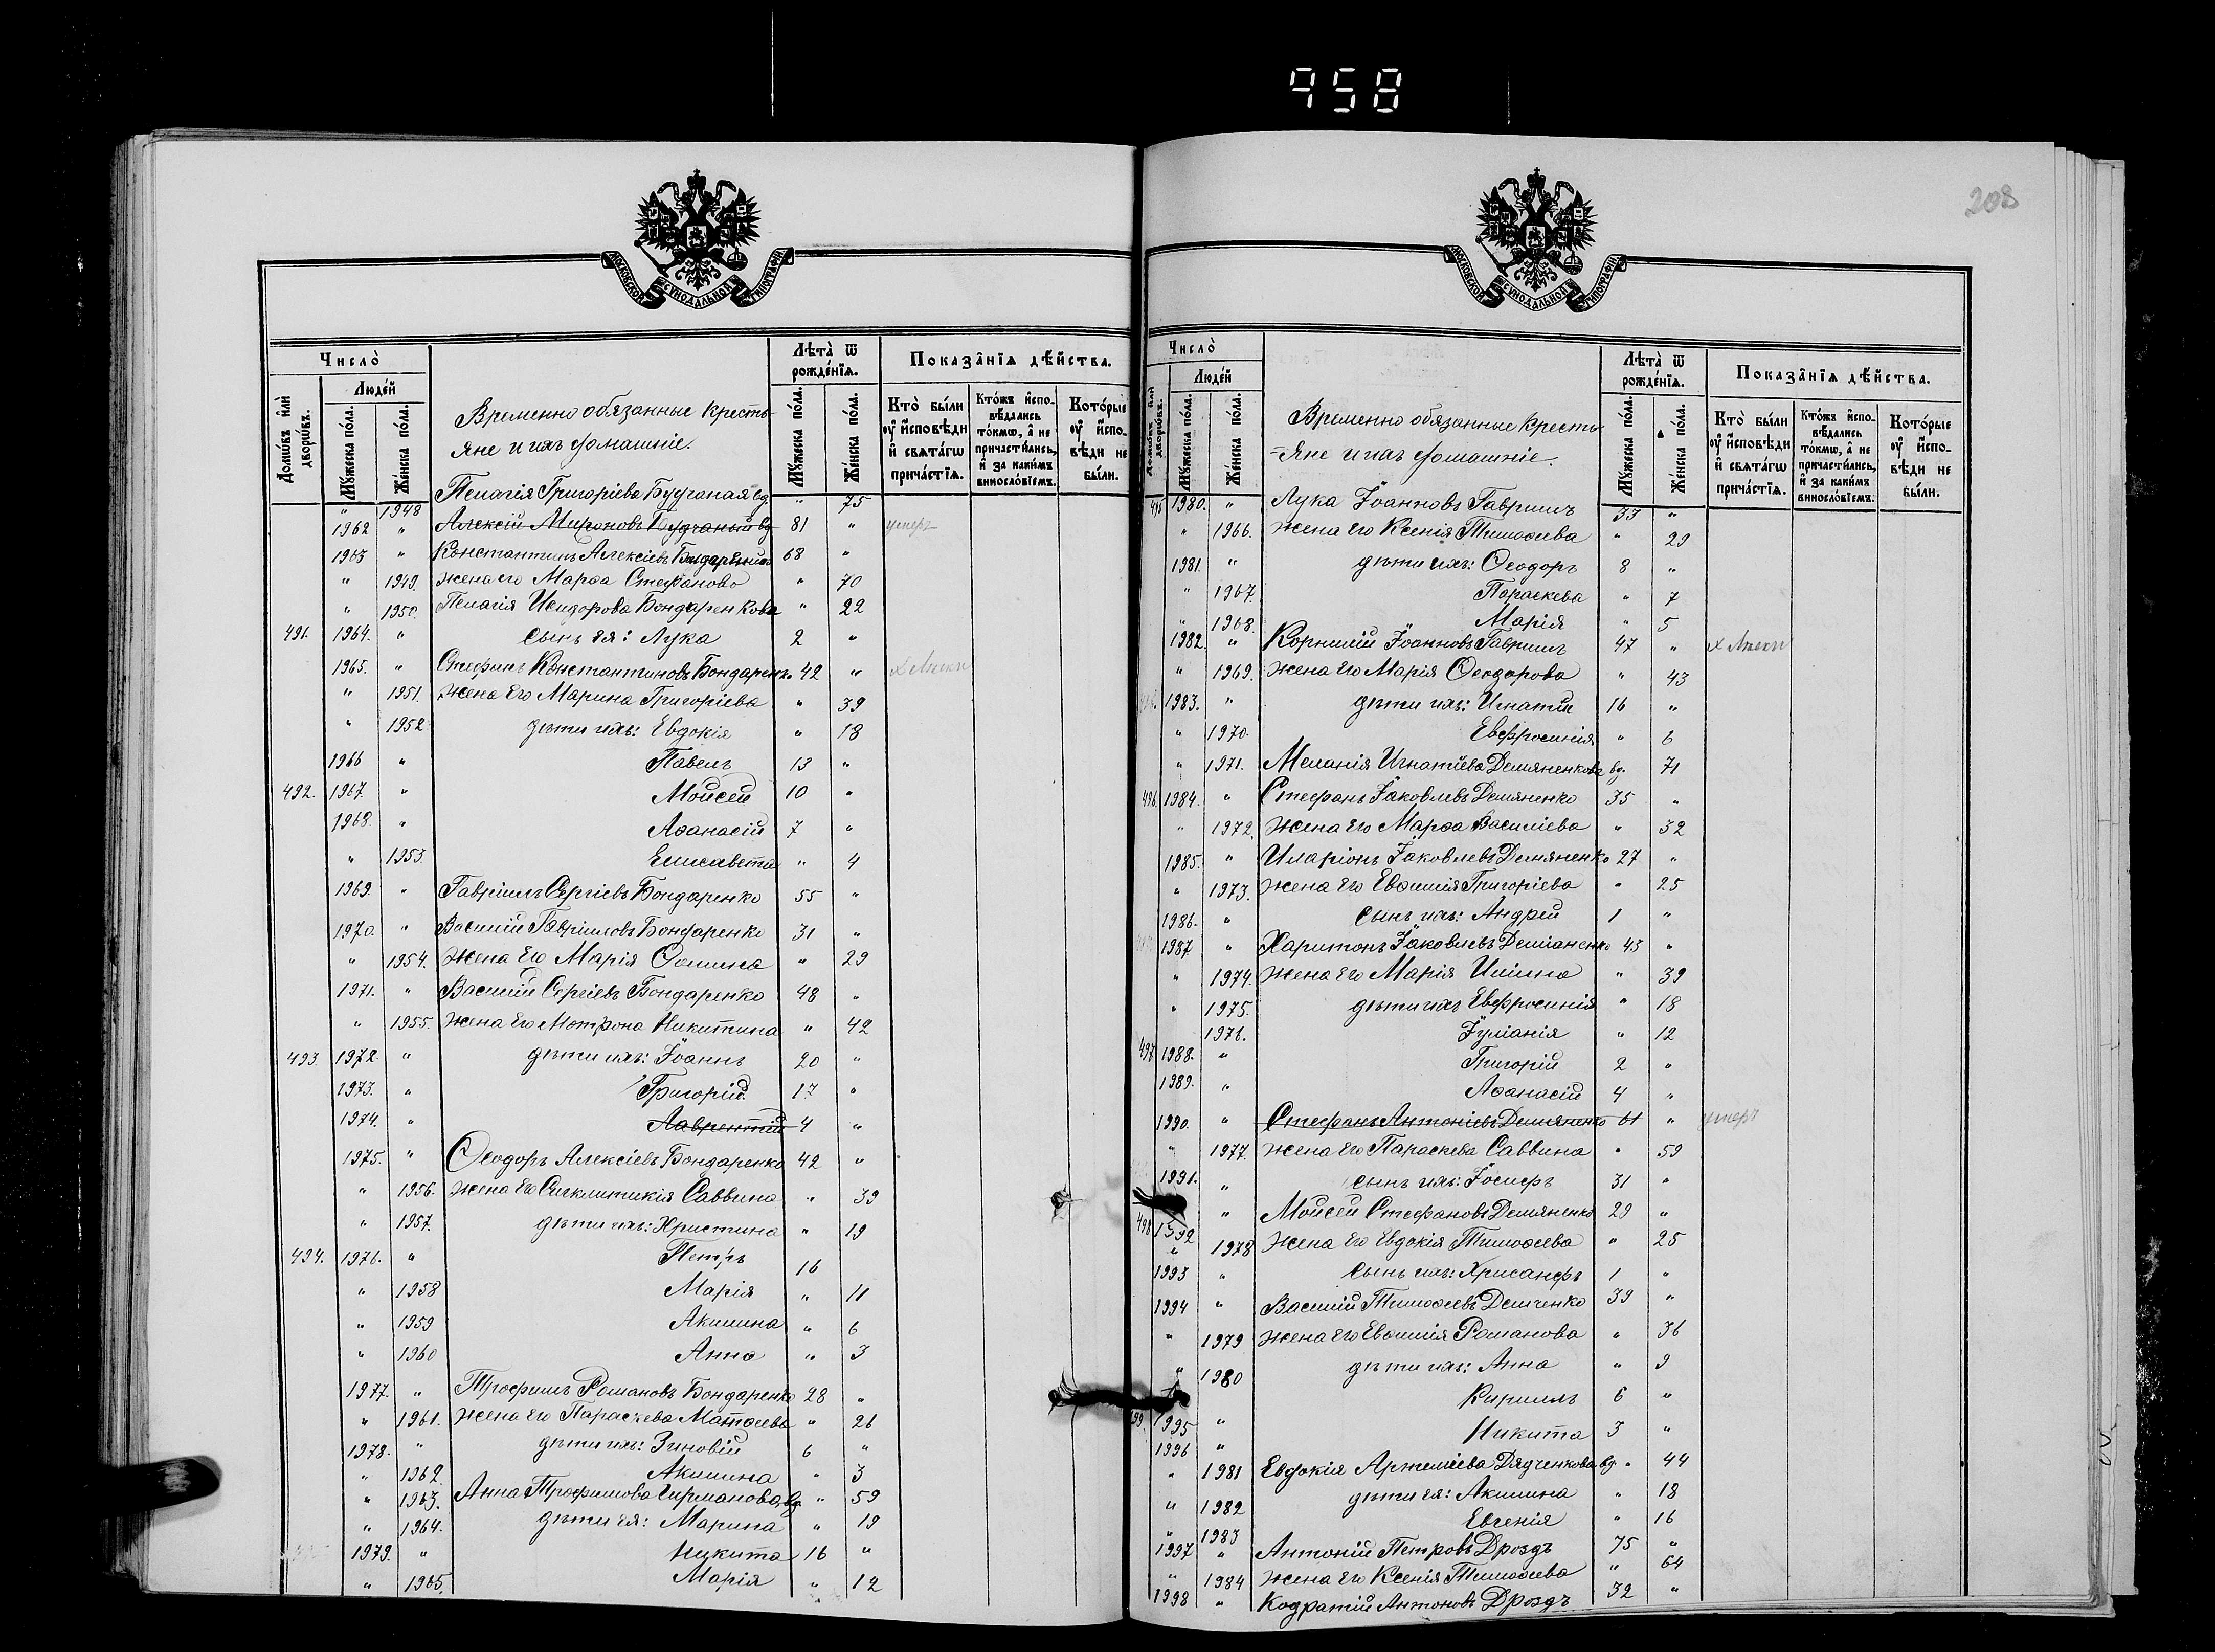 958
208
МОСКОВСКОЙ СУНОДАЛЬНОЙ ТИПОГРАФІИ
Число̀
Люде́й
Домѡ́въ и҆лѝ дворѡ́въ.
Мꙋ́жеска по́ла.
Же́нска по́ла.
Временно обязанные кресть-
яне и ихъ домашніе.
Лѣта̀ ѿ рожде́нїѧ.
Мꙋ́жеска по́ла.
Же́нска по́ла.
Показа̂нїѧ дѣ́йства.
Кто̀ бы́ли оу҆ и҆сповѣ́ди и҆ свѧта́гѡ прича́стїѧ.
Кто́жъ и҆сповѣ́дались то́кмѡ, а҆ не причасти́лись, и҆ за каки́мъ винносло́вїемъ.
Кото́рые оу҆ и҆сповѣ́ди не бы́ли.
" 1948 Пелагія Григоріева Будчаная вд. " 75
1962 " Алексій Мироновъ Будчаный вд 81 " умеръ
1963 " Константинъ Алексіевъ Бондаренко 68 "
" 1949. жена его Марѳа Стефанова " 70
" 1950. Пелагія Исидорова Бондаренкова " 22
491. 1964. " сынъ ея: Лука 2 "
1965. " Стефанъ Константиновъ Бондаренко 42 "
" 1951. жена Его Марина Григоріева " 39
" 1952 дѣти ихъ: Евдокія " 18
1966 " Павелъ 13 "
492. 1967. " Моисей 10 "
1968. " Аѳанасій 7 "
" 1953. Елисавета " 4
1969. " Гавріилъ Сергіевъ Бондаренко 55 "
1970. " Василій Гавріиловъ Бондаренко 31 "
" 1954. жена Его Марія Ѳомина " 29
1971. " Василій Сергіевъ Бондаренко 48 "
" 1955. жена Его Мотрона Никитина " 42
493. 1972. " дѣти ихъ: Іоаннъ 20 "
1973. " Григорій 17 "
1974. " Лаврентій 4 "
1975. " Ѳеодоръ Алексіевъ Бондаренко 42 "
" 1956. жена Его Сигклитикія Саввина " 39
" 1957. дѣти ихъ: Христина " 19
494. 1976. " Петръ 16
" 1958 Марія " 11
" 1959 Акилина " 6
" 1960 Анна " 3
1977. " Трофимъ Романовъ Бондаренко 28 "
" 1961. жена Его Параскева Матѳеева " 26
1978. " дѣти ихъ: Зиновій 6 "
" 1962 Акилина " 3
" 1963. Анна Трофимова вд. " 59
" 1964. дѣти ея: Марина " 19
1979. " Никита 16 "
" 1965. Марія " 12
МОСКОВСКОЙ СУНОДАЛЬНОЙ ТИПОГРАФІИ
Число̀
Люде́й
Домѡ́въ и҆лѝ дворѡ́въ.
Мꙋ́жеска по́ла.
Же́нска по́ла.
Временно обязанные кресть-
-яне и ихъ домашніе.
Лѣта̀ ѿ рожде́нїѧ.
Мꙋ́жеска по́ла.
Же́нска по́ла.
Показа̂нїѧ дѣ́йства.
Кто̀ бы́ли оу҆ и҆сповѣ́ди и҆ свѧта́гѡ прича́стїѧ.
Кто́жъ и҆сповѣ́дались то́кмѡ, а҆ не причасти́лись, и҆ за каки́мъ винносло́вїемъ.
Кото́рые оу҆ и҆сповѣ́ди не бы́ли.
495 1980. " Лука Іоанновъ Гаврилъ 33 "
" 1966. жена Его Ксенія Тимоѳеева " 29
1981. " дѣти ихъ: Ѳеодоръ 8 "
" 1967. Параскева " 7
" 1968. Марія " 5
1982. " Корнилій Іоанновъ Гаврилъ 47 "
" 1969. жена Его Марія Ѳеодорова " 43
1983. " дѣти ихъ: Игнатій 16 "
" 1970. Евфросинія " 6
" 1971. Меланія Игнатіева Демяненкова вд. 71
496. 1984. " Стефанъ Іаковлевъ Демяненко 35 "
" 1972. жена Его Марѳа Василіева " 32
1985. " Иларіонъ Іаковлевъ Демяненко 27 "
" 1973. жена Его Евѳимія Григоріева " 25
1986. " сынъ ихъ: Андрей 1 "
1987 " Харитонъ Іаковлевъ Деміаненко 43 "
" 1974. жена Его Марія Илiина " 39
" 1975. дѣти ихъ Евфросинія " 18
1976. Іуліанія " 12
497 1988. " Григорій 2 "
1989. " Аѳанасій 4 "
1990. " Стефанъ Антоніевъ Демяненко 61 " умеръ
" 1977. жена Его Параскева Саввина " 59
1991. " сынъ ихъ: Іосифъ 31 "
" Моисей Стефановъ Демяненко 29 "
498 1992
" 1978 жена Его Евдокія Тимоѳеева " 25
1993 " сынъ ихъ: Хрисанфъ 1 "
1994 " Василій Тимоѳеевъ Демченко 39 "
" 1979 жена Его Евѳимія Романова " 36
" 1980 дѣти ихъ: Анна " 9
1995 " Кириллъ 6 "
1996 " Никита 3 "
" 1981 Евдокія Артеміева Дядченкова вд. " 44
" 1982 дѣти ея: Акилина " 18
" 1983 Евгенія " 16
1997 " Антоній Петровъ Дроздъ 75 "
" 1984 жена Его Ксенія Тимоѳеева " 64
1998 " Кодратій Антоновъ Дроздъ 32 "